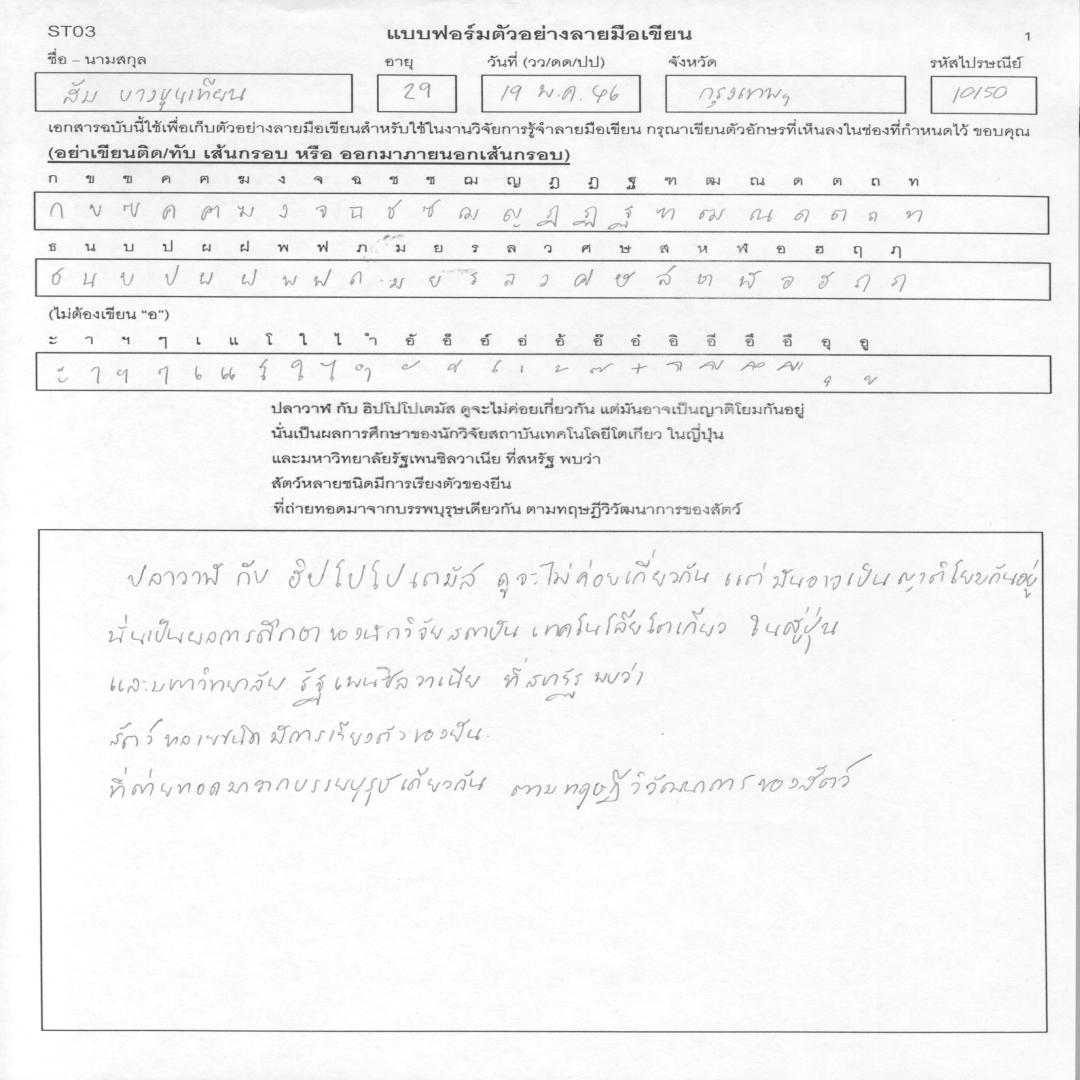 ST03
แบบฟอร์มตัวอย่างลายมือเขียน
1
ชื่อ – นามสกุล อายุ วันที่ (วว/ดด/ปป) จังหวัด รหัสไปรษณีย์
ส้ม บางขุนเทียน 29 19 พ.ค. 46 กรุงเทพฯ 10150
เอกสารฉบับนี้ใช้เพื่อเก็บตัวอย่างลายมือเขียนสำหรับใช้ในงานวิจัยการรู้จำลายมือเขียน กรุณาเขียนตัวอักษรที่เห็นลงในช่องที่กำหนดไว้ ขอบคุณ
(อย่าเขียนติด/ทับ เส้นกรอบ หรือ ออกมาภายนอกเส้นกรอบ)
ก ข ฃ ค ฅ ฆ ง จ ฉ ช ซ ฌ ญ ฎ ฏ ฐ ฑ ฒ ณ ด ต ถ ท
ก ข ฃ ค ฅ ฆ ง จ ฉ ช ซ ฌ ญ ฎ ฏ ฐ ฑ ฒ ณ ด ต ถ ท
ธ น บ ป ผ ฝ พ ฟ ภ ม ย ร ล ว ศ ษ ส ห ฬ อ ฮ ฤ ฦ
ธ น บ ป ผ ฝ พ ฟ ภ ม ย ร ล ว ศ ษ ส ห ฬ อ ฮ ฤ ฦ
(ไม่ต้องเขียน “อ”)
ะ า ฯ ๆ เ แ โ ใ ไ ำ อั อ็ อ์ อ่ อ้ อ๊ อ๋ อิ อี อึ อื อุ อู
ะ า ฯ ๆ เ แ โ ใ ไ ำ ั ็ ์ ่ ้ ๊ ๋ ิ ี ึ ื ุ ู
ปลาวาฬ กับ ฮิปโปโปเตมัส ดูจะไม่ค่อยเกี่ยวกัน แต่มันอาจเป็นญาติโยมกันอยู่
นั่นเป็นผลการศึกษาของนักวิจัยสถาบันเทคโนโลยีโตเกียว ในญี่ปุ่น
และมหาวิทยาลัยรัฐเพนซิลวาเนีย ที่สหรัฐ พบว่า
สัตว์หลายชนิดมีการเรียงตัวของยีน
ที่ถ่ายทอดมาจากบรรพบุรุษเดียวกัน ตามทฤษฎีวิวัฒนาการของสัตว์
ปลาวาฬ กับ ฮิปโปโปเตมัส ดูจะไม่ค่อยเกี่ยวกัน แต่มันอาจเป็นญาติโยมกันอยู่
นั่นเป็นผลการศึกษาของนักวิจัยสถาบัน เทคโนโลยีโตเกียว ในญี่ปุ่น
และมหาวิทยาลัย รัฐเพนซิลวาเนีย ที่สหรัฐ พบว่า
สัตว์หลายชนิดมีการเรียงตัวของยีน
ที่ถ่ายทอดมาจากบรรพบุรุษเดียวกัน ตามทฤษฎีวิวัฒนาการของสัตว์